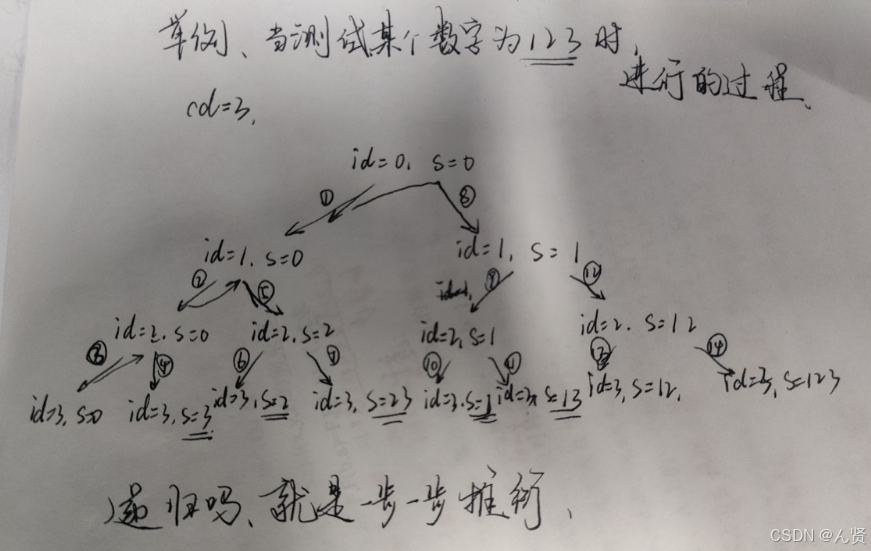 举例、当测试某个数字为123时,
进行的过程、
cd=3,
id=0, s=0
① ⑧
id=1, s=0 id=1, s=1
② ⑤ ⑨ ⑫
id=2, s=0 id=2, s=2 id=2, s=1 id=2, s=12
③ ④ ⑥ ⑦ ⑩ ⑪ ⑬ ⑭
id=3, s=0 id=3, s=3 id=3, s=2 id=3, s=23 id=3, s=1 id=3, s=13 id=3, s=12, id=3, s=123
递归吗、就是一步一步推衍、
CSDN @ん贤